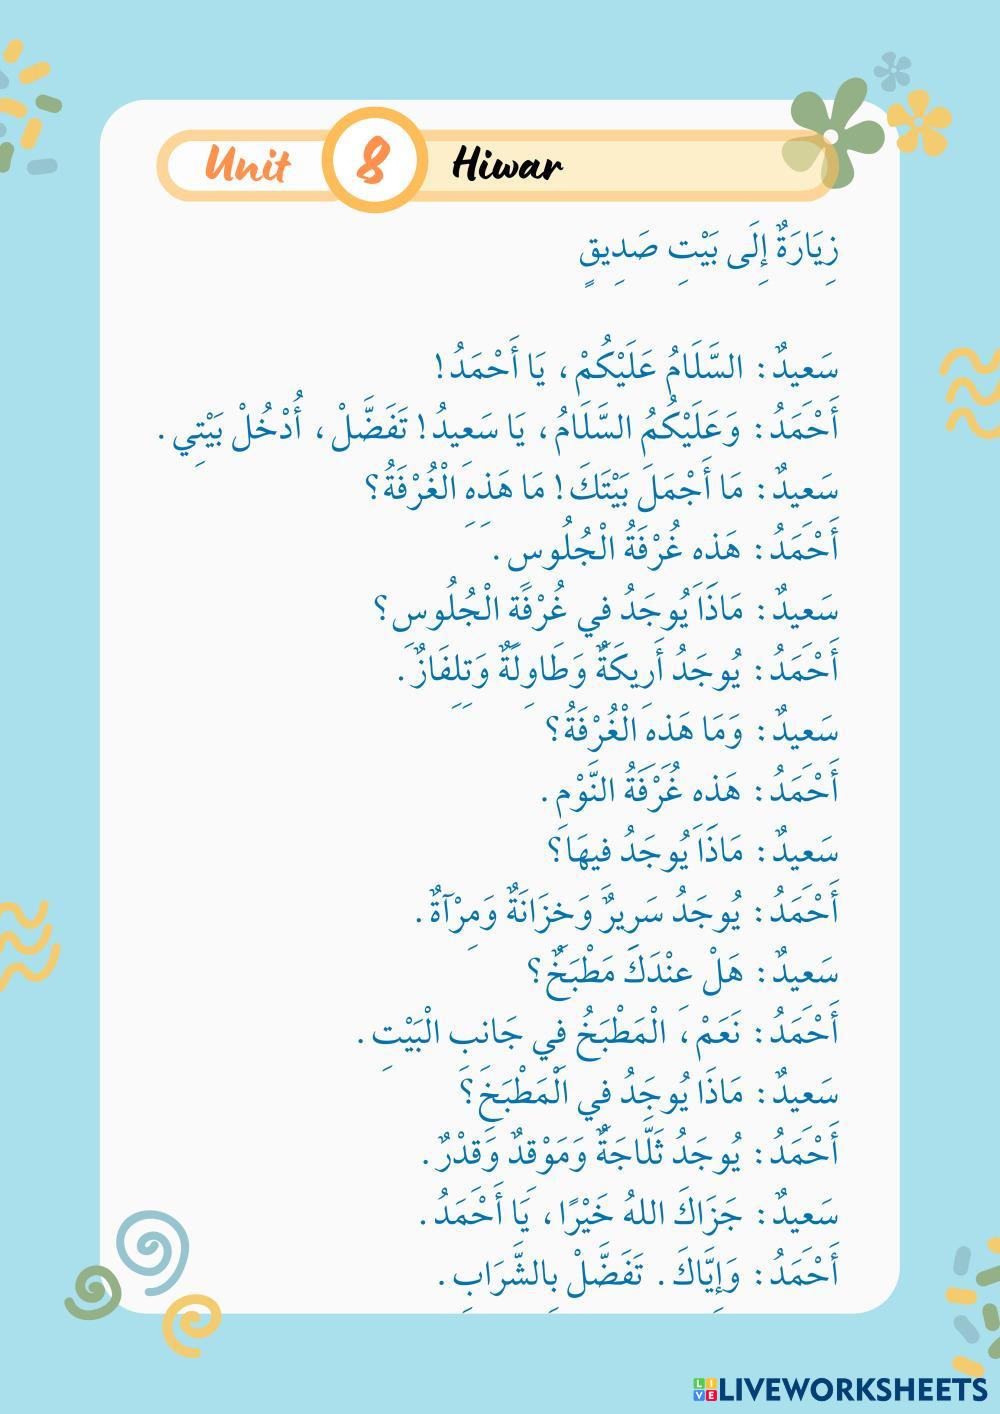 Unit 8 Hiwar
زِيَارَةٌ إِلَى بَيْتِ صَدِيقٍ
سَعِيدٌ: السَّلَامُ عَلَيْكُمْ، يَا أَحْمَدُ!
أَحْمَدُ: وَعَلَيْكُمُ السَّلَامُ، يَا سَعِيدُ! تَفَضَّلْ، أُدْخُلْ بَيْتِي.
سَعِيدٌ: مَا أَجْمَلَ بَيْتَكَ! مَا هَذِهِ الْغُرْفَةُ؟
أَحْمَدُ: هَذِهِ غُرْفَةُ الْجُلُوسِ.
سَعِيدٌ: مَاذَا يُوجَدُ فِي غُرْفَةِ الْجُلُوسِ؟
أَحْمَدُ: يُوجَدُ أَرِيكَةٌ وَطَاوِلَةٌ وَتِلِفَازٌ.
سَعِيدٌ: وَمَا هَذِهِ الْغُرْفَةُ؟
أَحْمَدُ: هَذِهِ غُرْفَةُ النَّوْمِ.
سَعِيدٌ: مَاذَا يُوجَدُ فِيهَا؟
أَحْمَدُ: يُوجَدُ سَرِيرٌ وَخِزَانَةٌ وَمِرْآةٌ.
سَعِيدٌ: هَلْ عِنْدَكَ مَطْبَخٌ؟
أَحْمَدُ: نَعَمْ، الْمَطْبَخُ فِي جَانِبِ الْبَيْتِ.
سَعِيدٌ: مَاذَا يُوجَدُ فِي الْمَطْبَخِ؟
أَحْمَدُ: يُوجَدُ ثَلَّاجَةٌ وَمَوْقِدٌ وَقِدْرٌ.
سَعِيدٌ: جَزَاكَ اللهُ خَيْرًا، يَا أَحْمَدُ.
أَحْمَدُ: وَإِيَّاكَ. تَفَضَّلْ بِالشَّرَابِ.
LIVE LIVEWORKSHEETS